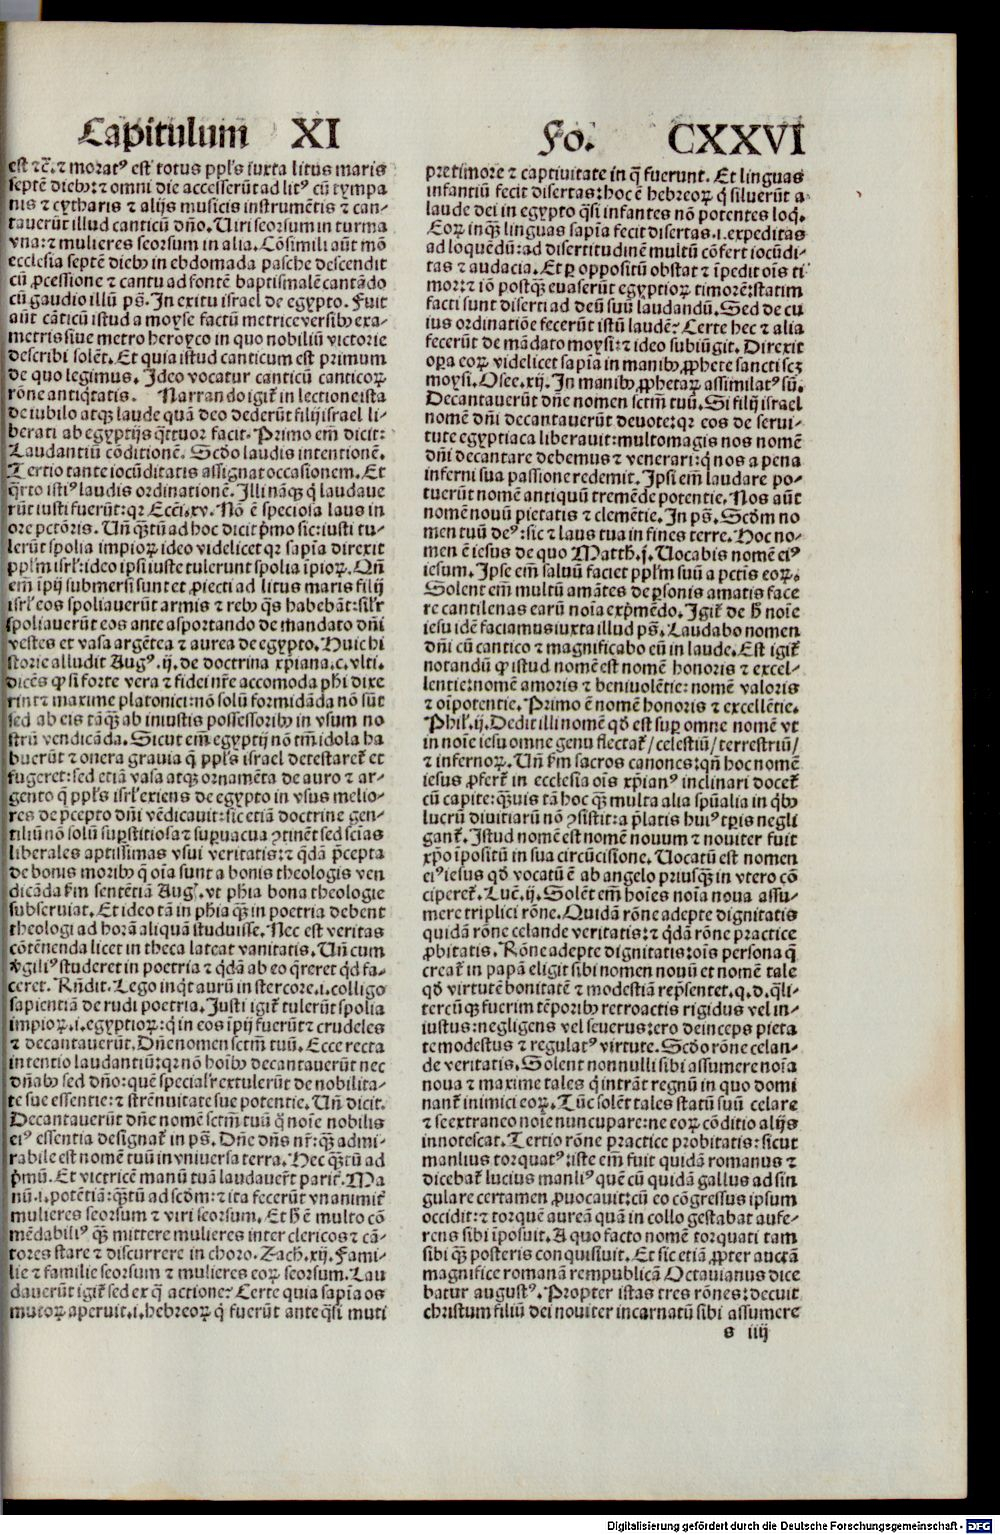 Capitulum XI
Fo. CXXVI
est ⁊c̄. ⁊ moratꝰ est totus ppl's iuxta litus maris
septē diebꝫ: ⁊ omni die accesserūt ad litꝰ cū tympa
nis ⁊ cytharis ⁊ alijs musicis instrumētis ⁊ can-
tauerūt illud canticū dño. Uiri seorsum in turma
vna: ⁊ mulieres seorsum in alia. Cōsimili aūt mō
ecclesia septē diebꝫ in ebdomada pasche descendit
cū ꝓcessione ⁊ cantu ad fontē baptismalē cantādo
cū gaudio illū ps̄. In exitu israel de egypto. Fuit
aūt cāticū istud a moyse factū metrice versibꝫ exa-
metris siue metro heroyco in quo nobiliū victorie
describi solēt. Et quia istud canticum est primum
de quo legimus. Ideo vocatur canticū canticoꝝ
rōne antiq̄tatis. Narrando igit̄ in lectione ista
de iubilo atqꝫ laude quā deo dederūt filij israel li-
berati ab egyptijs q̄ttuor facit. Primo em̄ dicit:
Laudantiū cōditionē. Scd̄o laudis intentionē.
Tertio tante iocūditatis assignat occasionem. Et
q̄rto istiꝰ laudis ordinationē. Illi nāqꝫ q̄ laudaue
rūt iusti fuerūt: qꝛ Ecc̄i. xv. Nō ē speciosa laus in
ore pctōris. Uñ q̄ꝫtū ad hoc dicit p̄mo sic: iusti tu-
lerūt spolia impioꝝ ideo videlicet qꝛ sapīa direxit
ppl'm isrl': ideo ipsi iuste tulerunt spolia īpioꝝ. Qñ
em̄ īpij submersi sunt et ꝓiecti ad litus maris filij
isrl' eos spoliauerūt armis ⁊ rebꝫ q̄s habebāt: sil'r
spoliauerūt eos ante asportando de mandato dñi
vestes et vasa argētea ⁊ aurea de egypto. Huic hi
storie alludit Augꝰ. ij. de doctrina xp̄iana. c. vlti.
dicēs ꝙ si forte vera ⁊ fidei nr̄e accomoda ph̄i dixe
rint ⁊ maxime platonici: nō solū formidāda nō sūt
sed ab eis tāqꝫ ab iniustis possessoribꝫ in vsum no
strū vendicāda. Sicut em̄ egyptij nō tm̄ idola ha
buerūt ⁊ onera grauia q̄ ppl's israel detestaret̄ et
fugeret: sed etiā vasa atqꝫ ornamēta de auro ⁊ ar-
gento q̄ ppl's isrl' exiens de egypto in vsus melio-
res de p̄cepto dñi vēdicauit: sic etiā doctrine gen-
tiliū nō solū suꝑstitiosa ⁊ suꝑuacua ꝯtinēt sed sc̄ias
liberales aptissimas vsui veritatis: ⁊ q̄dā p̄cepta
de bonis moribꝫ q̄ oīa sunt a bonis theologis ven
dicāda km̄ sentētiā Augꝰ. vt ph̄ia bona theologie
subseruiat. Et ideo tā in ph̄ia q̄ꝫ in poetria debent
theologi ad horā aliquā studuisse. Nec est veritas
cōtēnenda licet in theca lateat vanitatis. Uñ cum
v̄giliꝰ studeret in poetria ⁊ q̄dā ab eo q̄reret qd̄ fa-
ceret. Rñdit. Lego inq̄t aurū in stercore. i. colligo
sapientiā de rudi poetria. Justi igit̄ tulerūt spolia
impioꝝ. i. egyptioꝝ: q̄ in eos īpij fuerūt ⁊ crudeles
⁊ decantauerūt. Dñe nomen sctm̄ tuū. Ecce recta
intentio laudantiū: qꝛ nō hoībꝫ decantauerūt nec
dñabꝫ sed dño: quē special'r extulerūt de nobilita-
te sue essentie: ⁊ strēnuitate sue potentie. Uñ dicit.
Decantauerūt dñe nomē sctm̄ tuū q̄ noīe nobilis
eiꝰ essentia designat̄ in ps̄. Dñe dñs nr̄: q̄ꝫ admi-
rabile est nomē tuū in vniuersa terra. Hec q̄ꝫtū ad
p̄mū. Et victricē manū tuā laudauer̄t parit̄. Ma
nū. i. potētiā: q̄ꝫtū ad scd̄m: ⁊ ita fecerūt vnanimit̄
mulieres seorsum ⁊ viri seorsum. Et h̄ ē multo cō
mēdabiliꝰ q̄ꝫ mittere mulieres inter clericos ⁊ cā-
tores stare ⁊ discurrere in choro. Zach. xij. Fami-
lie ⁊ familie seorsum ⁊ mulieres eoꝝ seorsum. Lau
dauerūt igit̄ sed ex q̄ actione? Certe quia sapīa os
mutoꝝ aperuit. i. hebreoꝝ q̄ fuerūt ante q̄si muti
pre timore ⁊ captiuitate in q̄ fuerunt. Et linguas
infantiū fecit disertas: hoc ē hebreoꝝ q̄ siluerūt a
laude dei in egypto q̄si infantes nō potentes loq̄.
Eoꝝ inqꝫ linguas sapīa fecit disertas. i. expeditas
ad loquēdū: ad disertitudinē multū cōfert iocūdi-
tas ⁊ audacia. Et ꝑ oppositū obstat ⁊ īpedit oīs ti
mor: ⁊ iō postqꝫ euaserūt egyptioꝝ timorē: statim
facti sunt diserti ad deū suū laudandū. Sed de cu
ius ordinatiōe fecerūt istū laudē? Certe hec ⁊ alia
fecerūt de mādato moysi: ⁊ ideo subiūgit. Direxit
oꝑa eoꝝ videlicet sapīa in manibꝫ ꝓphete sancti scꝫ
moysi. Osee. xij. In manibꝫ ꝓphetaꝝ assimilatꝰ sū.
Decantauerūt dñe nomen sctm̄ tuū. Si filij israel
nomē dñi decantauerūt deuote: qꝛ eos de serui-
tute egyptiaca liberauit: multomagis nos nomē
dñi decantare debemus ⁊ venerari: q̄ nos a pena
inferni sua passione redemit. Ipsi em̄ laudare po-
tuerūt nomē antiquū tremēde potentie. Nos aūt
nomē nouū pietatis ⁊ clemētie. In ps̄. Scd̄m no
men tuū deꝰ: sic ⁊ laus tua in fines terre. Hoc no-
men ē iesus de quo Matth. j. Uocabis nomē eiꝰ
iesum. Ipse em̄ saluū faciet ppl'm suū a pctīs eoꝝ.
Solent em̄ multū amātes de ꝑsonis amatis face
re cantilenas earū noīa exp̄mēdo. Igit̄ de h̄ noīe
iesu idē faciamus iuxta illud ps̄. Laudabo nomen
dñi cū cantico ⁊ magnificabo eū in laude. Est igit̄
notandū ꝙ istud nomē est nomē honoris ⁊ excel-
lentie: nomē amoris ⁊ beniuolētie: nomē valoris
⁊ oīpotentie. Primo ē nomē honoris ⁊ excellētie.
Phil'. ij. Dedit illi nomē qd̄ est suꝑ omne nomē vt
in noīe iesu omne genu flectat̄ / celestiū / terrestriū /
⁊ infernoꝝ. Uñ km̄ sacros canones: qñ hoc nomē
iesus ꝓfert̄ in ecclesia oīs xp̄ianꝰ inclinari docet̄
cū capite: q̄ꝫuis tā hoc q̄ꝫ multa alia spūalia in q̄bꝫ
lucrū diuitiarū nō ꝯsistit: a p̄latis huiꝰ tꝑis negli
gant̄. Istud nomē est nomē nouum ⁊ nouiter fuit
xp̄o īpositū in sua circūcisione. Uocatū est nomen
eiꝰ iesus qd̄ vocatū ē ab angelo priusqꝫ in vtero cō
ciperet̄. Luc̄. ij. Solēt em̄ hoīes noīa noua assu-
mere triplici rōne. Quidā rōne adepte dignitatis
quidā rōne celande veritatis: ⁊ q̄dā rōne practice
ꝓbitatis. Rōne adepte dignitatis: oīs persona q̄
creat̄ in papā eligit sibi nomen nouū et nomē tale
qd̄ virtutē bonitatē ⁊ modestiā rep̄sentet. q. d. q̄li-
tercūqꝫ fuerim tēporibꝫ retroactis rigidus vel in-
iustus: negligens vel seuerus: ero deinceps pieta
te modestus ⁊ regulatꝰ virtute. Scd̄o rōne celan-
de veritatis. Solent nonnulli sibi assumere noīa
noua ⁊ maxime tales q̄ intrāt regnū in quo domi
nant̄ inimici eoꝝ. Tūc solēt tales statū suū celare
⁊ se extraneo noīe nuncupare: ne eoꝝ cōditio alijs
innotescat. Tertio rōne practice probitatis: sicut
manlius torquatꝰ: iste em̄ fuit quidā romanus ⁊
dicebat̄ lucius manliꝰ quē cū quidā gallus ad sin
gulare certamen ꝓuocauit: cū eo cōgressus ipsum
occidit: ⁊ torquē aureā quā in collo gestabat aufe-
rens sibi īposuit. A quo facto nomē torquati tam
sibi q̄ꝫ posteris conquisiuit. Et sic etiā ꝓpter auctā
magnifice romanā rempublicā Octauianus dice
batur augustꝰ. Propter istas tres rōnes: decuit
christum filiū dei nouiter incarnatū sibi assumere
s iiij
Digitalisierung gefördert durch die Deutsche Forschungsgemeinschaft - DFG